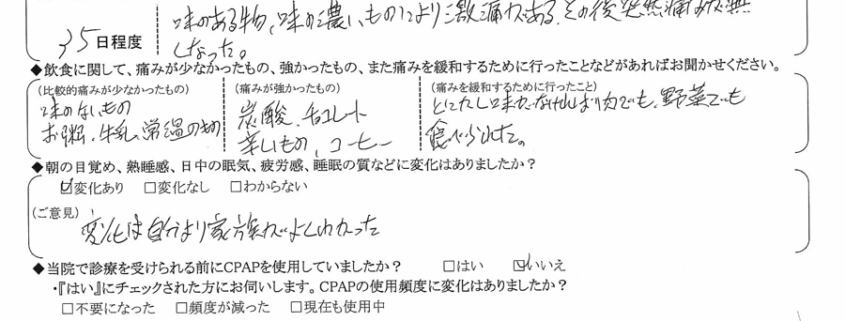 味のある物、味の濃いものにより激痛がある、その後突然痛みが無
35日程度
しなった。
◆飲食に関して、痛みが少なかったもの、強かったもの、また痛みを緩和するために行ったことなどがあればお聞かせください。
(比較的痛みが少なかったもの) (痛みが強かったもの) (痛みを緩和するために行ったこと)
味のないもの 炭酸、チョコレート とにかく味がなければ肉でも、野菜でも
お粥、牛乳、常温のもの 辛いもの、コーヒー 食べられた。
◆朝の目覚め、熟睡感、日中の眠気、疲労感、睡眠の質などに変化はありましたか？
☑変化あり □変化なし □わからない
(ご意見)
変化は自分より家族がよくわかった
◆当院で診療を受けられる前にCPAPを使用していましたか？ □はい ☑いいえ
・『はい』にチェックされた方にお伺いします。CPAPの使用頻度に変化はありましたか？
□不要になった □頻度が減った □現在も使用中